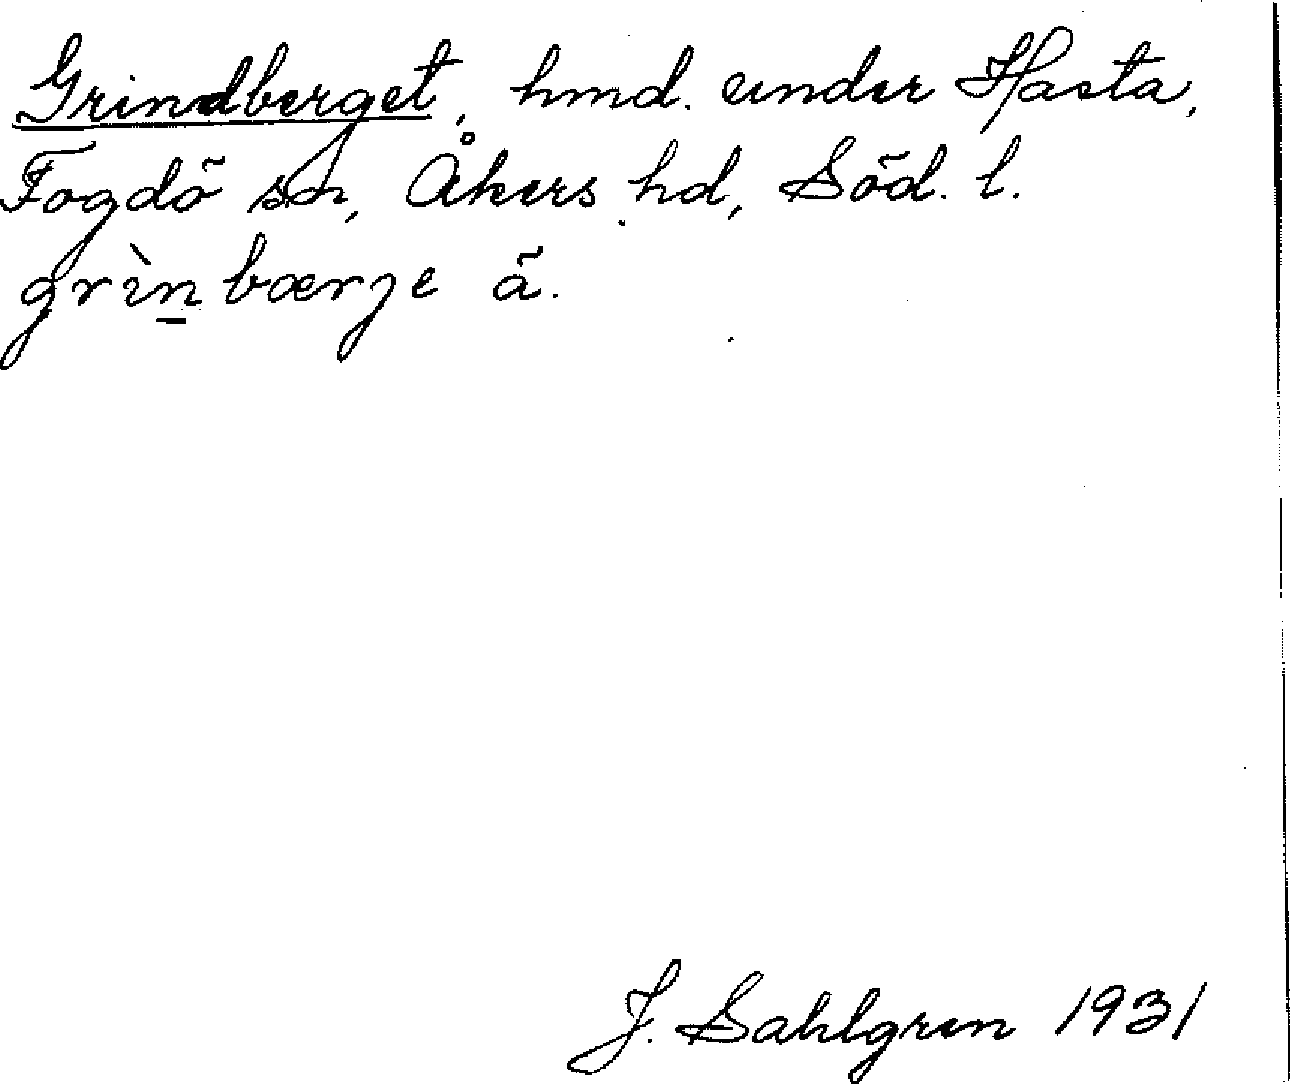 Grindberget, hmd. under Hasta,
Fogdö sn, Åkers hd, Söd. l.
grìn̲bærje ä.
J. Sahlgren 1931